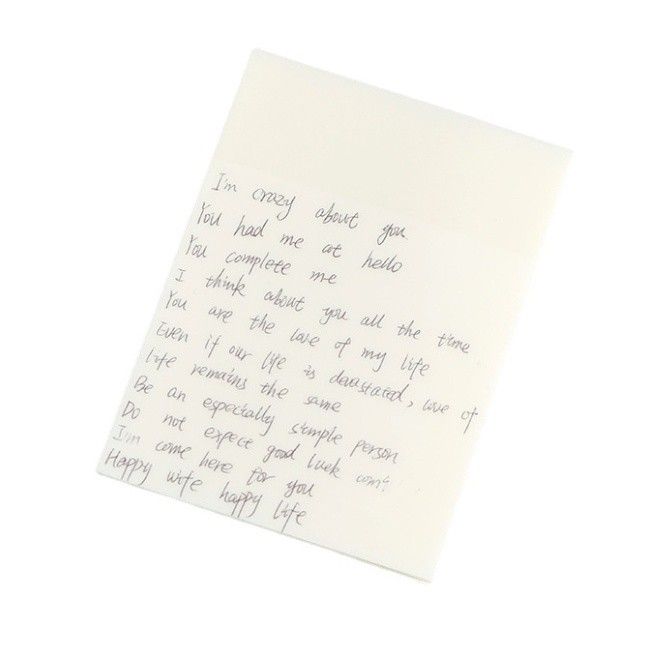 I'm crazy about you
You had me at hello
You complete me
I think about you all the time
You are the love of my life
Even if our life is devastated, love of
life remains the same
Be an especially simple person
Do not expect good luck
I'm come here for you
Happy wife happy life